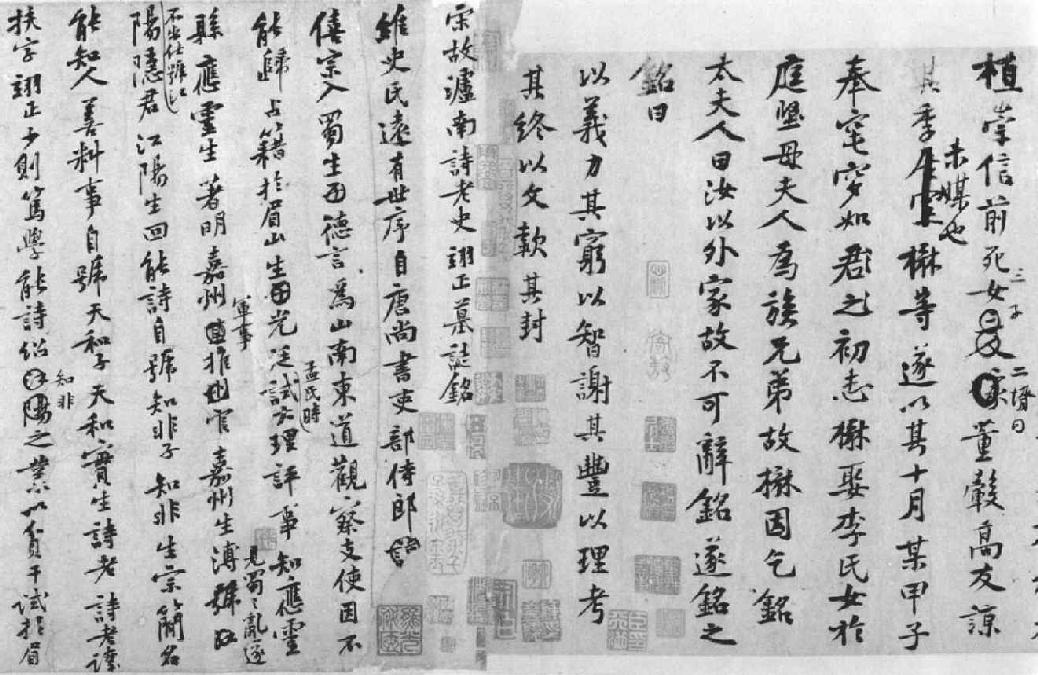 植崇信前死女三子二壻曰董毅高友諒
其季未媒也楙等遂以其十月某甲子
奉窀穸如君之初志楙娶李氏女於
庭堅母夫人為族兄弟故楙因乞銘
太夫人曰汝以外家故不可辭銘遂銘之
銘曰
以義力其窮以智謝其豐以理考
其終以文款其封
宋故瀘南詩老史翊正墓誌銘
維史氏遠有世序自唐尚書吏部侍郎
僖宗入蜀生德言為山南東道觀察支使因不
能歸占籍於眉山生光庭孟氏時試大理評事知應靈
縣應靈生著明嘉州軍事推官嘉州生溥見蜀之亂遂
不出仕號江陽隱君江陽生回能詩自號知非子知非生宗簡名
能知人善料事自號天和子天和實生詩老詩老諱
扶字翊正少則篤學能詩紹知非之業以貢干試於眉